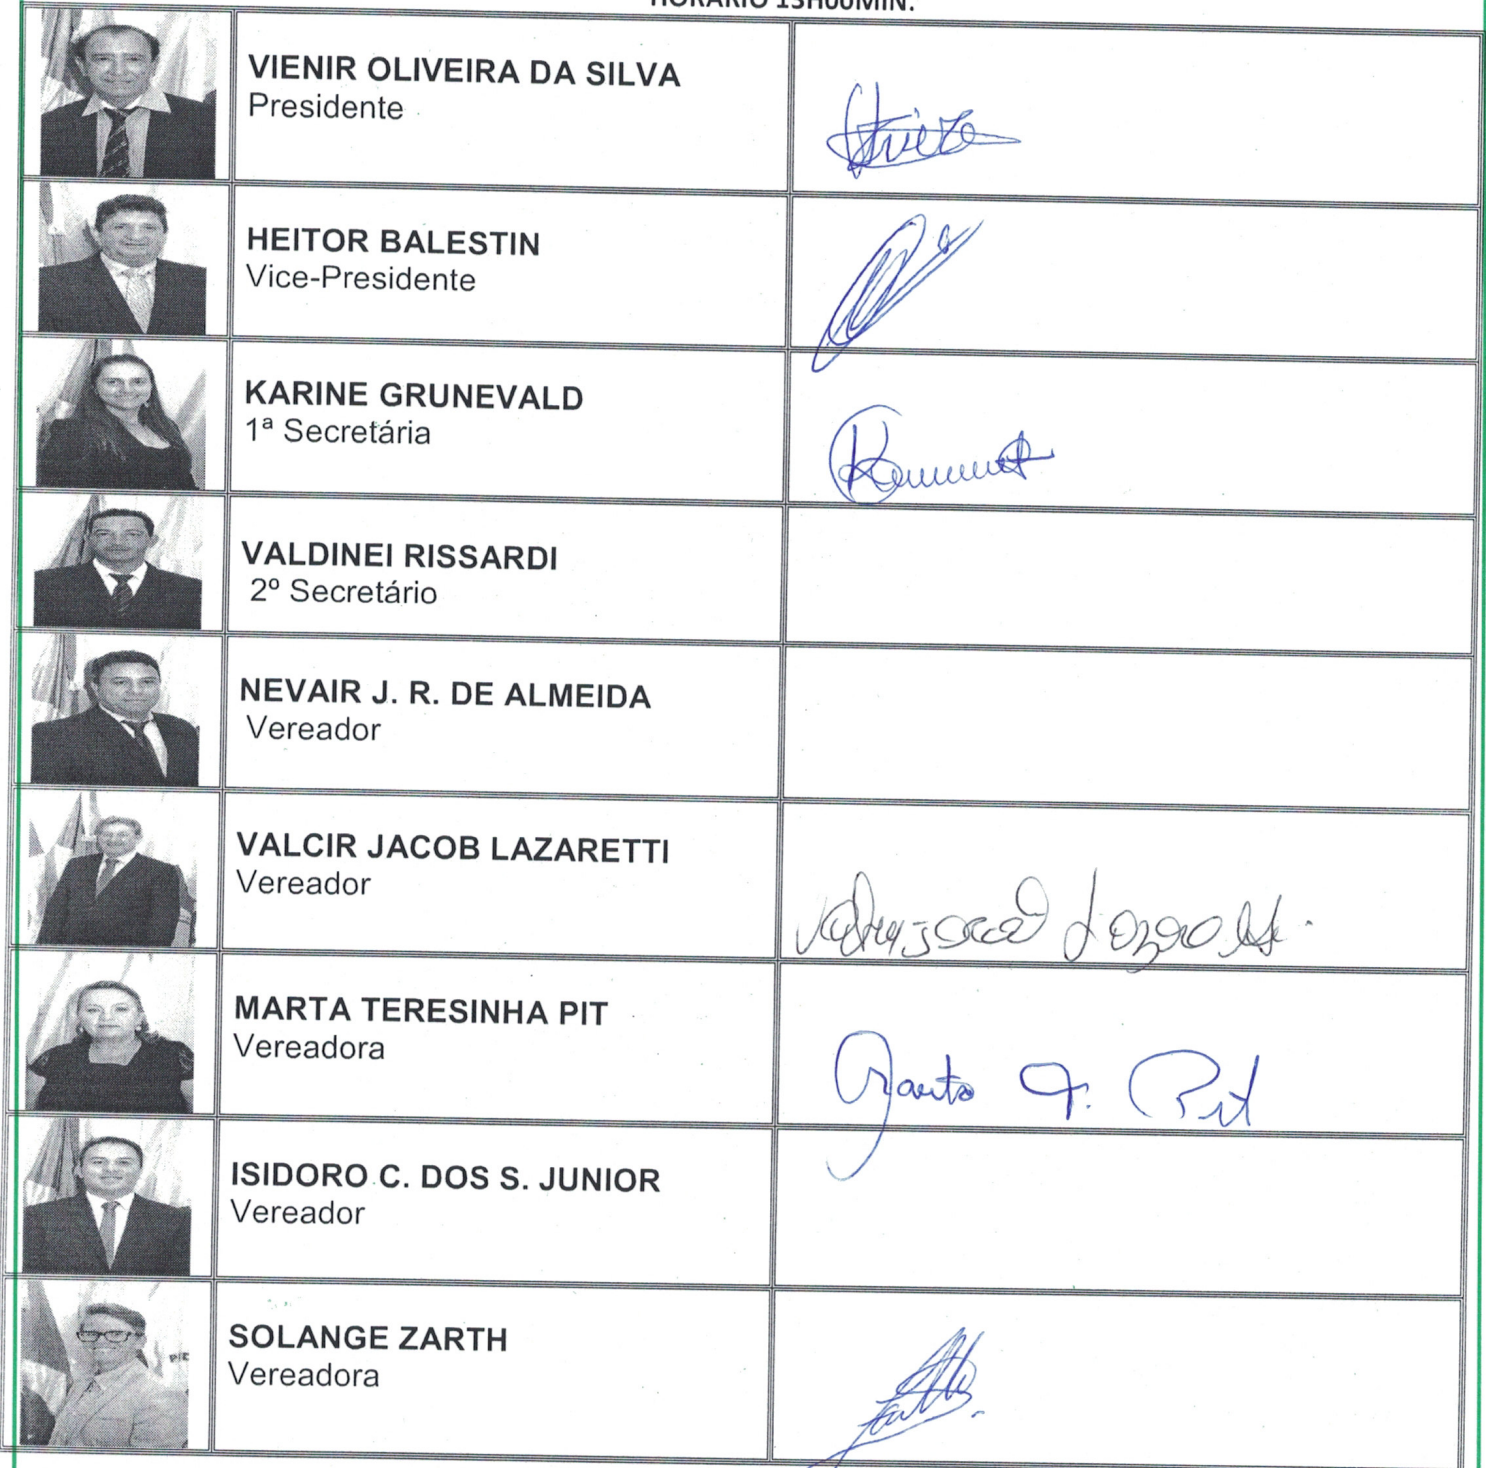 HORÁRIO 13H00MIN.
VIENIR OLIVEIRA DA SILVA
Presidente
HEITOR BALESTIN
Vice-Presidente
KARINE GRUNEVALD
1ª Secretária
VALDINEI RISSARDI
2º Secretário
NEVAIR J. R. DE ALMEIDA
Vereador
VALCIR JACOB LAZARETTI
Vereador
MARTA TERESINHA PIT
Vereadora
Marta T. Pit
ISIDORO C. DOS S. JUNIOR
Vereador
SOLANGE ZARTH
Vereadora